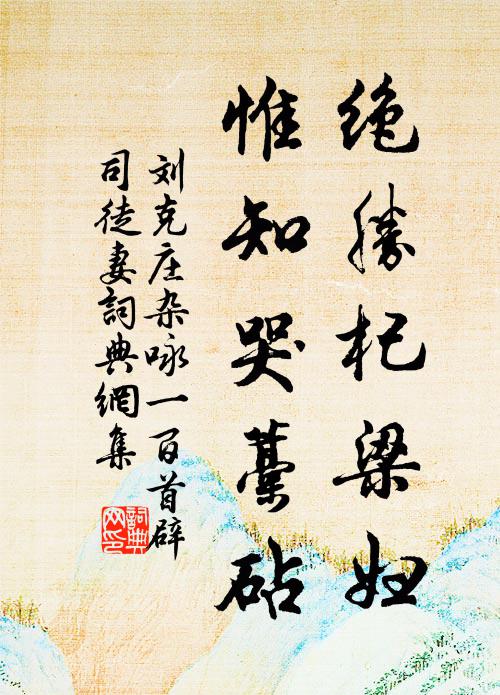 绝勝杞梁妇
惟知哭藁砧
刘克庄杂咏一百首辟
司徒妻詞典網集